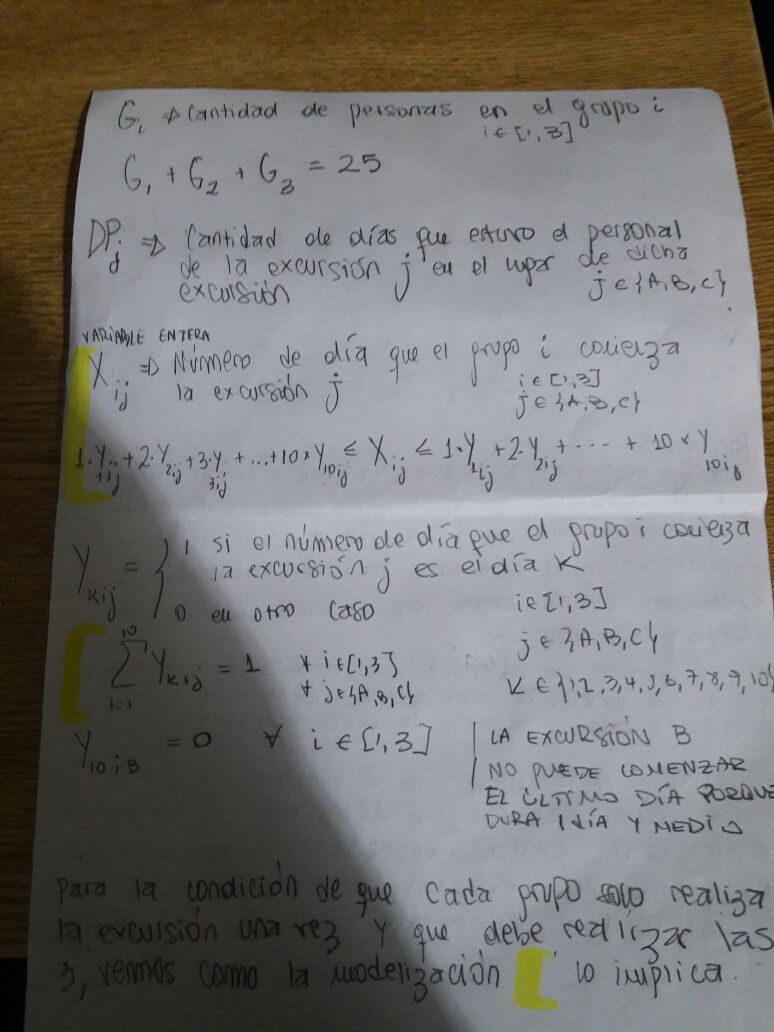 Gi => Cantidad de personas en el grupo i
i ∈ [1,3]
G1 + G2 + G3 = 25
DPj => Cantidad de días que estuvo el personal
de la excursión j en el lugar de dicha
excursión j ∈ {A, B, C}
VARIABLE ENTERA
Xij => Número de día que el grupo i comienza
la excursión j i ∈ [1,3]
j ∈ {A, B, C}
1·Y1ij + 2·Y2ij + 3·Y3ij + ... + 10×Y10ij ≤ Xij ≤ 1·Y1ij + 2·Y2ij + ..... + 10×Y10ij
Ykij = { 1 si el número de día que el grupo i comienza
la excursión j es el día K
0 en otro caso i ∈ [1,3]
j ∈ {A, B, C}
10
∑ Ykij = 1 ∀ i ∈ [1,3]
i=1 ∀ j ∈ {A, B, C} K ∈ {1,2,3,4,5,6,7,8,9,10}
Y10iB = 0 ∀ i ∈ [1,3] LA EXCURSIÓN B
NO PUEDE COMENZAR
EL ÚLTIMO DÍA PORQUE
DURA 1 DÍA Y MEDIO
Para la condición de que cada grupo solo realiza
la excursión una vez y que debe realizar las
3, vemos como la modelización [ lo implica.